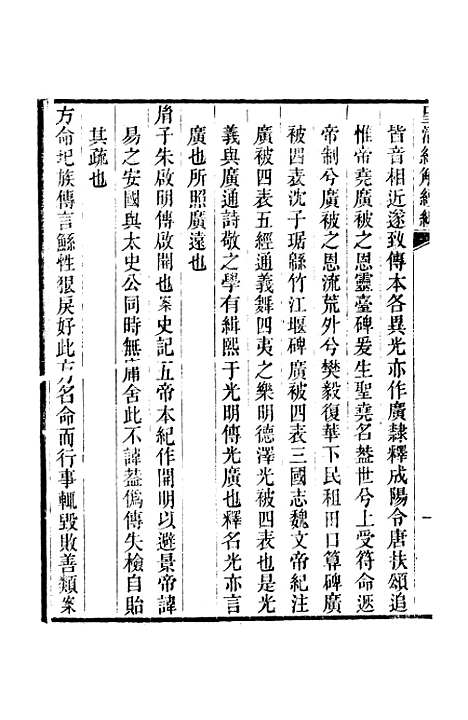 皇清經解續編
皆音相近遂致傳本各異光亦作廣隸釋成陽令唐扶頌追
惟帝堯廣被之恩靈臺碑爰生聖堯名葢世兮上受符命遜
帝制兮廣被之恩流荒外兮樊毅復華下民租田口算碑廣
被四表沈子琚緜竹江堰碑廣被四表三國志魏文帝紀注
廣被四表五經通義舞四夷之樂明德澤光被四表也是光
義與廣通詩敬之學有緝熙于光明傳光廣也釋名光亦言
廣也所照廣遠也
胤子朱啟明傳啟開也案史記五帝本紀作開明以避景帝諱
易之安國與太史公同時無庸舍此不諱葢僞傳失檢自貽
其疏也
方命圮族傳言鯀性狠戾好此方名命而行事輒毀敗善類案